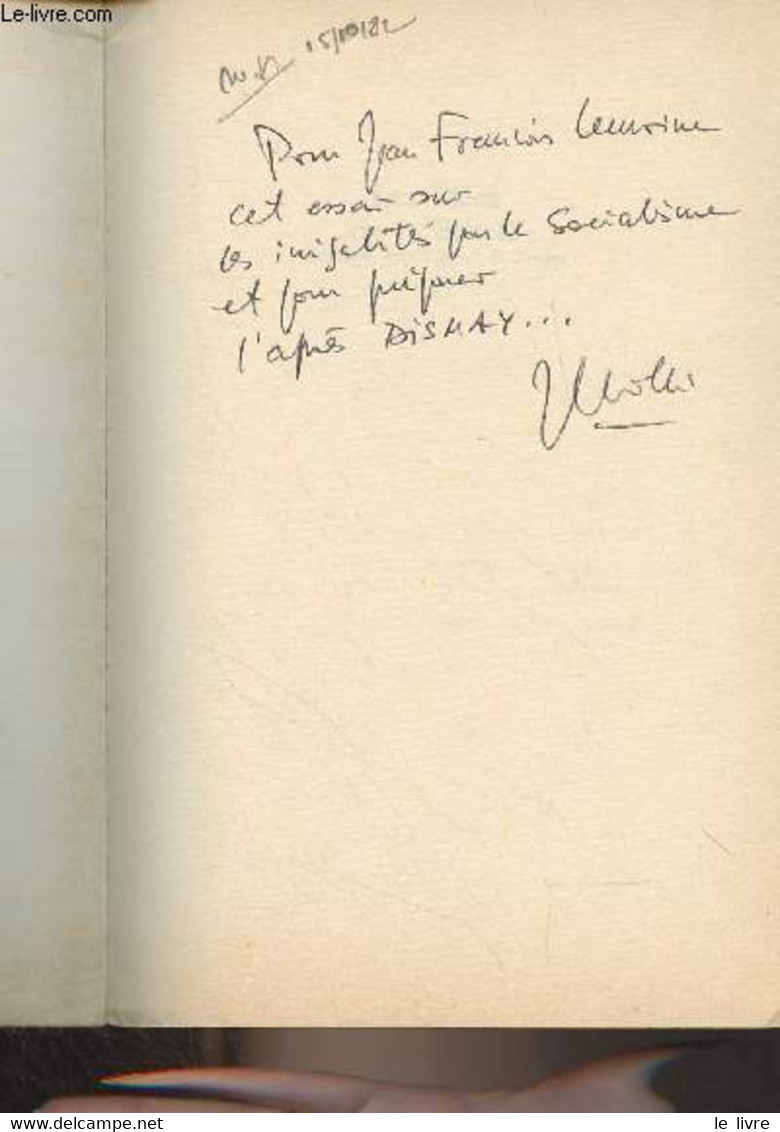 Le-livre.com
15/10/82
Pour Jean François Lemoine
cet essai sur
les inégalités par le Socialisme
et pour préparer
l'après DISMAY...
le livre